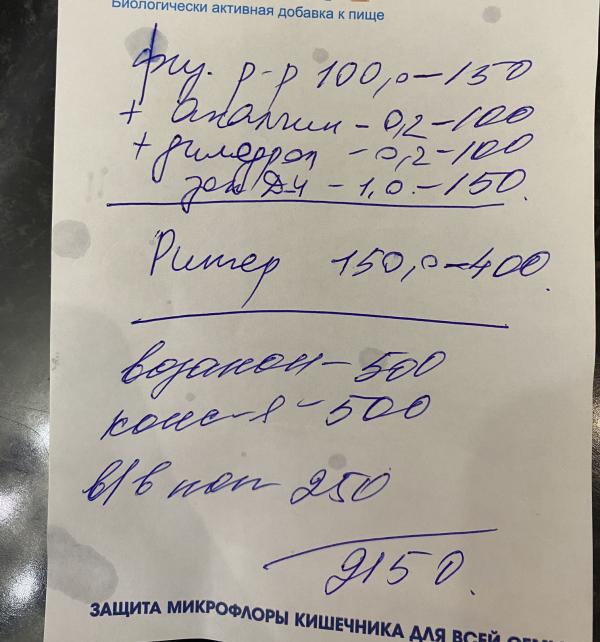 Биологически активная добавка к пище
физ. р-р 100,0 – 150
+ анальгин – 0,2 – 100
+ димедрол – 0,2 – 100
– 1,0 – 150.
Рингер 150,0 – 400.
– 500
конс-я – 500
в/в кап 250
2150.
ЗАЩИТА МИКРОФЛОРЫ КИШЕЧНИКА ДЛЯ ВСЕЙ